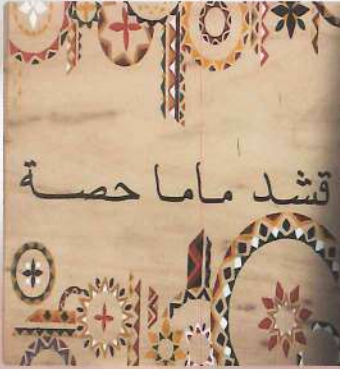 قشد ماما حصة